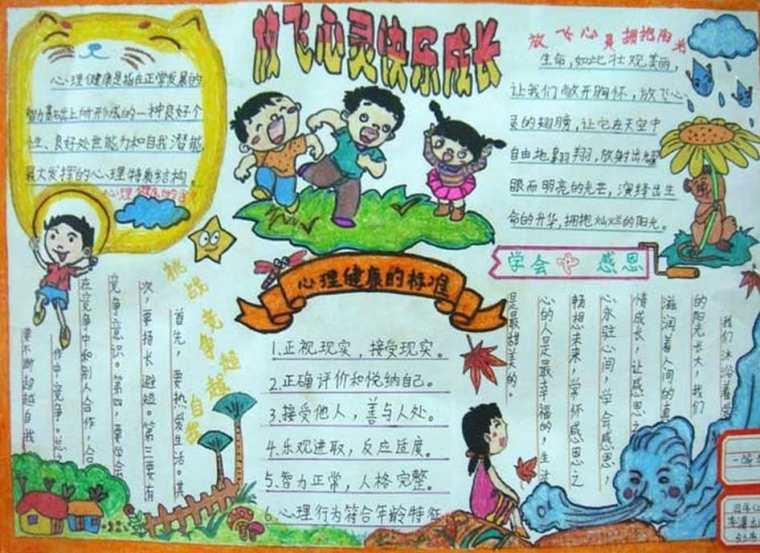 放飞心灵快乐成长
心理健康是指在正常发展的
智力基础上所形成的一种良好个
性、良好处世能力和自我潜能
最大发挥的心理特质结构。
放飞心灵拥抱阳光
生命，如此壮观美丽，
让我们敞开胸怀，放飞心
灵的翅膀，让它在天空中
自由地翱翔，放射出耀
眼而明亮的光芒，演绎出生
命的升华，拥抱灿烂的阳光。
学会 感恩
我们沐浴着
的阳光长大，我们
滋润着人间的真
情成长，让感恩之
心永驻心间，学会感恩，
畅想未来，常怀感恩之
心的人是最幸福的，生活
是最甜美的。
心理健康的标准
1.正视现实，接受现实。
2.正确评价和悦纳自己。
3.接受他人，善与人处。
4.乐观进取，反应适度。
5.智力正常，人格完整。
6.心理行为符合年龄特征
挑战竞争超越自我
首先，要热爱生活。其
次，要扬长避短。第三要有
竞争意识。第四，要学会
在竞争中和别人合作，合
作中竞争。总之
要不断超越自我